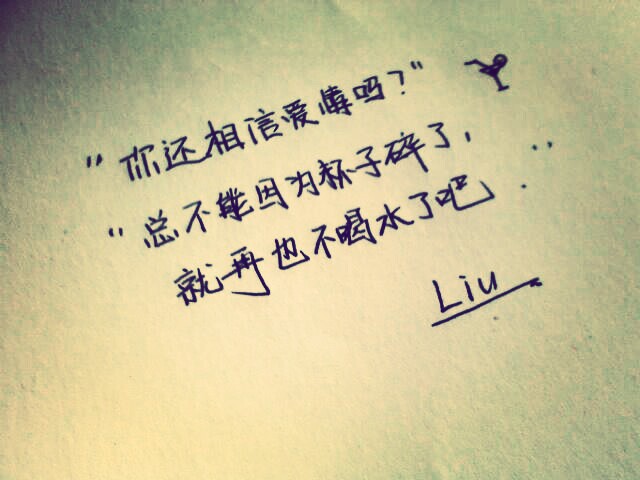 "你还相信爱情吗？"
"总不能因为杯子碎了，
就再也不喝水了吧．"
Liu